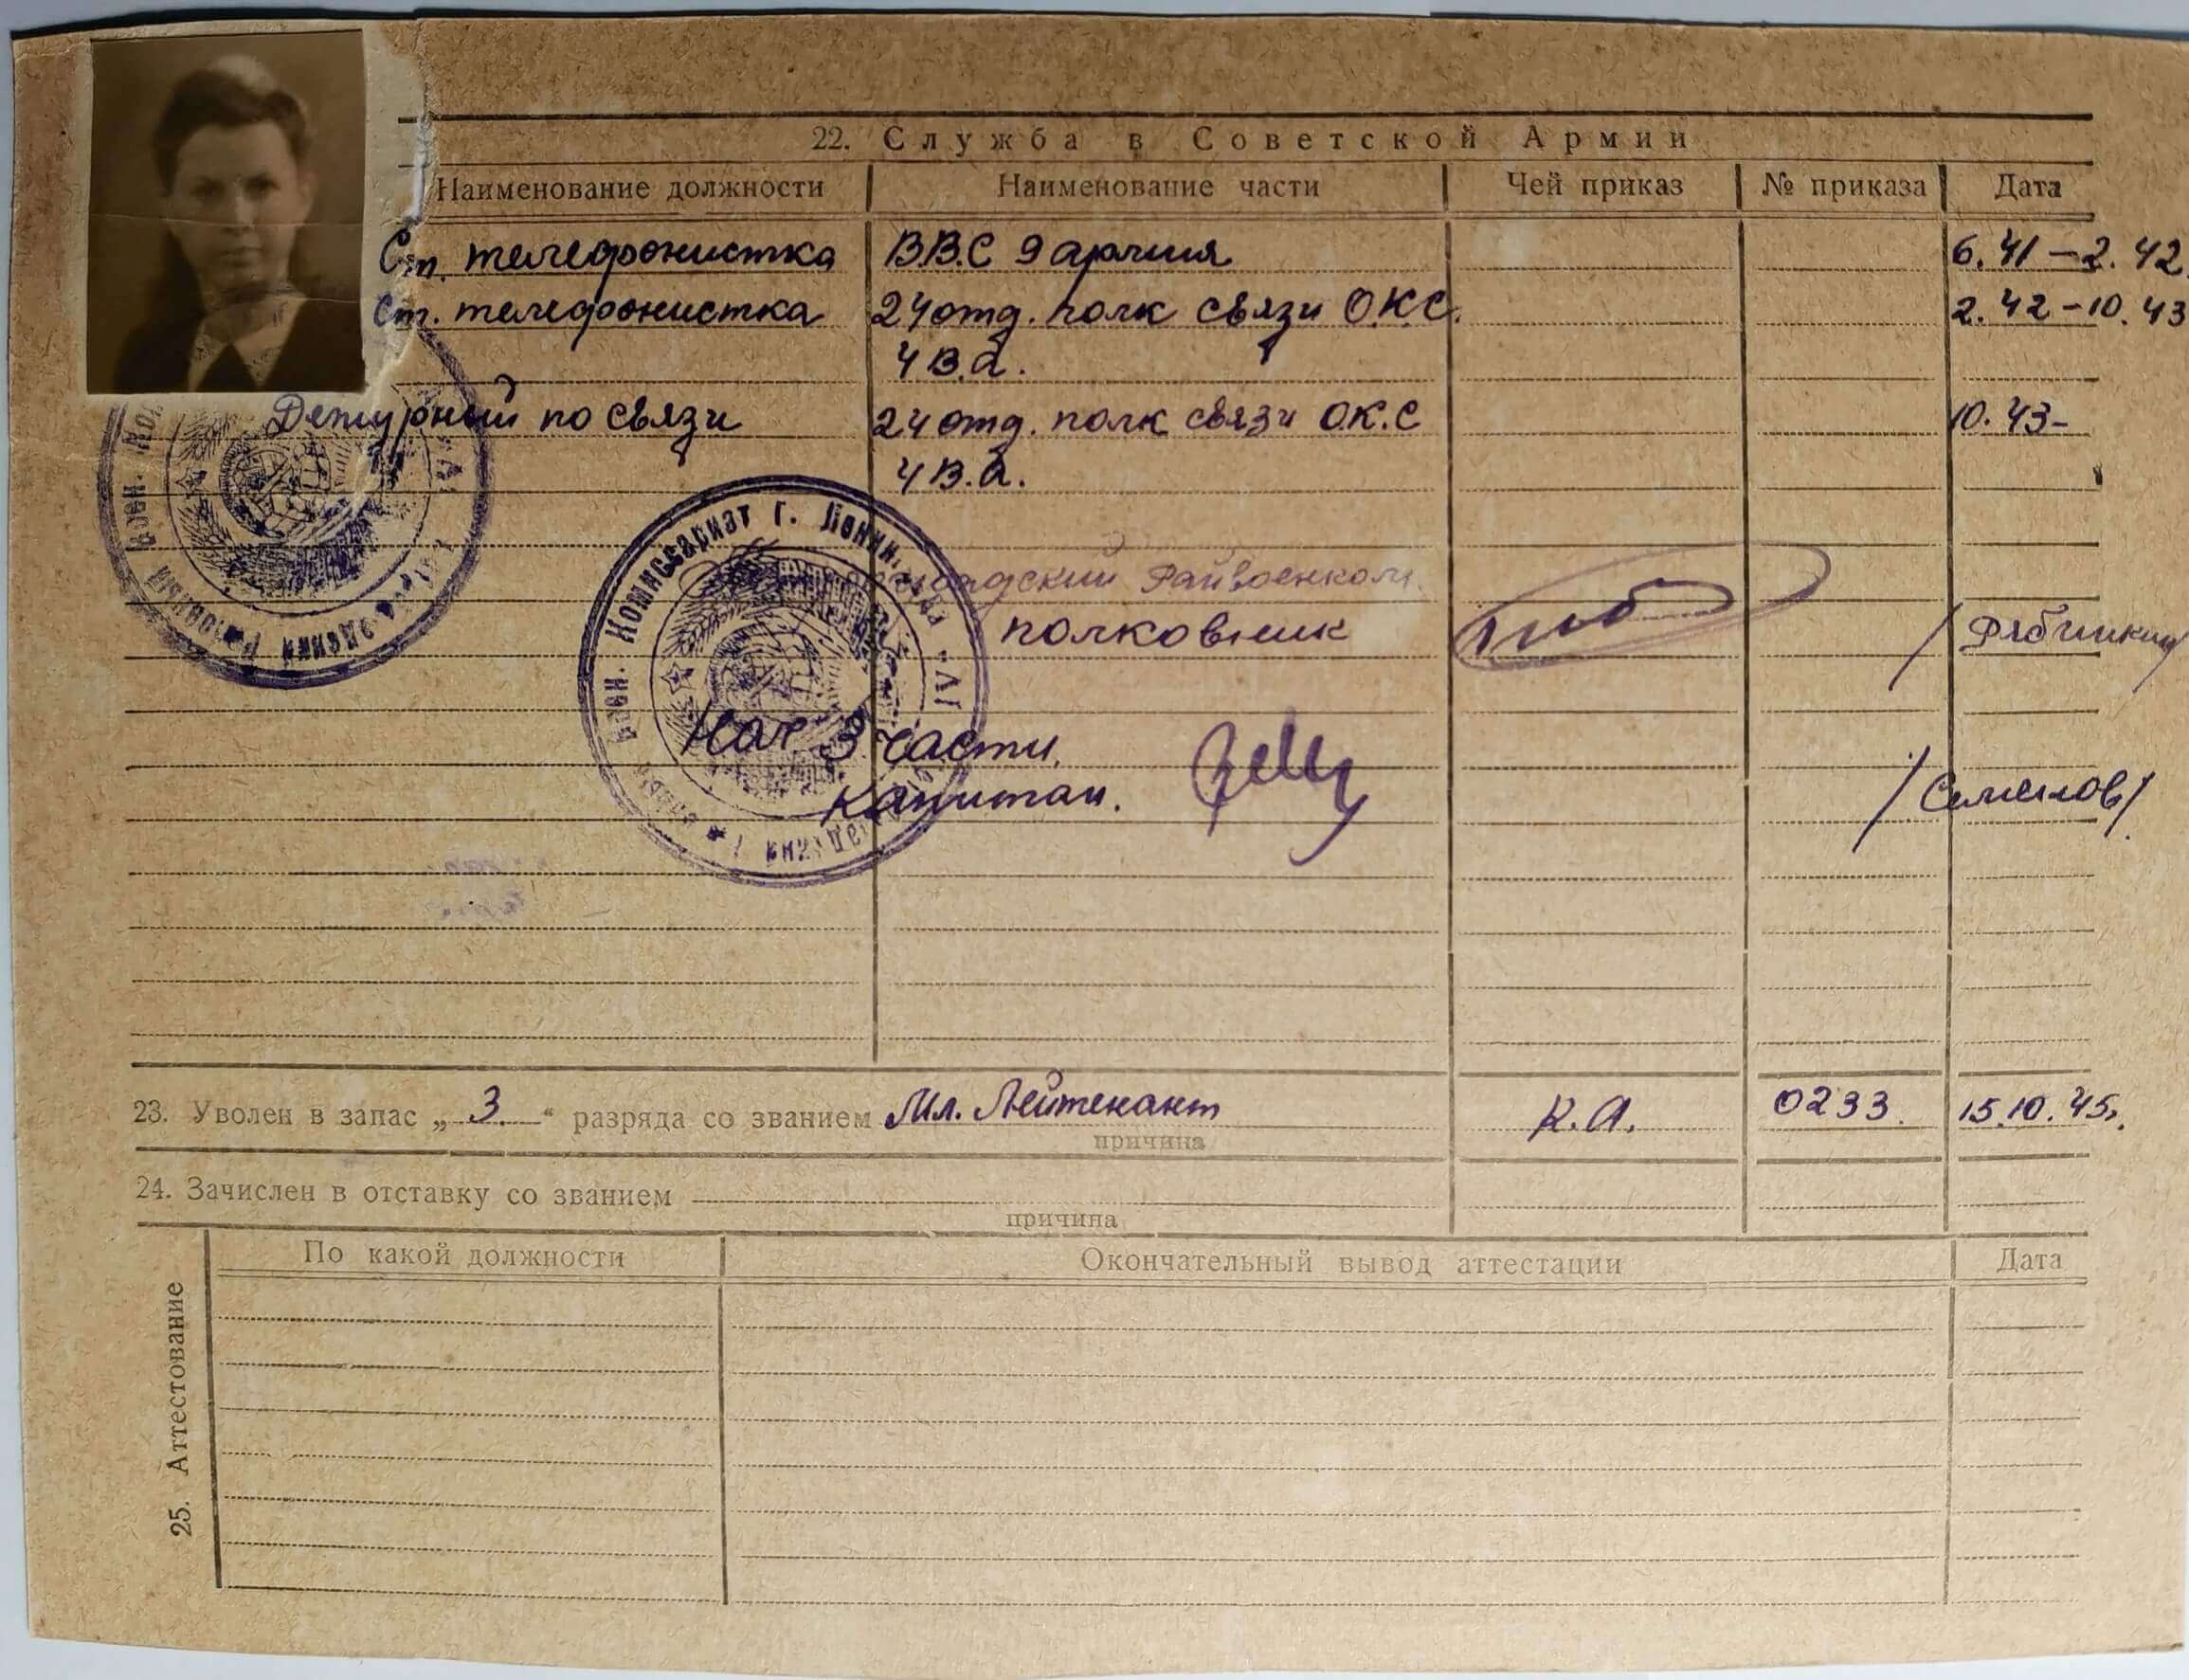 22. Служба в Советской Армии
Наименование должности Наименование части Чей приказ № приказа Дата
Ст. телефонистка В.В.С 9 армия 6.41–2.42
Ст. телефонистка 24 отд. полк связи О.К.С. 2.42–10.43
4 В.А.
Дежурный по связи 24 отд. полк связи О.К.С 10.43–
4 В.А.
Воен. Комиссариат г. Ленин
Райвоенком
полковник
Нач 3 части.
капитан. /Семенов/
23. Уволен в запас „3.“ разряда со званием Мл. Лейтенант К.А. 0233. 15.10.45.
причина
24. Зачислен в отставку со званием
причина
25. Аттестование
По какой должности Окончательный вывод аттестации Дата